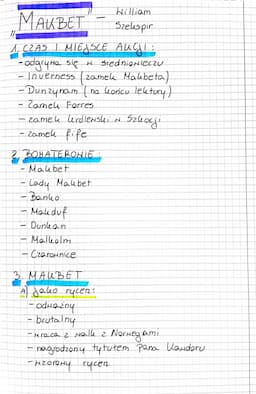 „MAKBET” – William
Szekspir
1. CZAS I MIEJSCE AKCJI:
- odgrywa się w średniowieczu
- Inverness (zamek Makbeta)
- Dunzynam (na końcu lektury)
- Zamek Forres
- zamek królewski w Szkocji
- zamek fife
2. BOHATEROWIE:
- Makbet
- Lady Makbet
- Banko
- Makduf
- Dunkan
- Malkolm
- Czarownice
3. MAKBET
A) jako rycerz:
- odważny
- brutalny
- wraca z walk z Norwegami
- nagrodzony tytułem Pana Kawdoru
- wzorowy rycerz